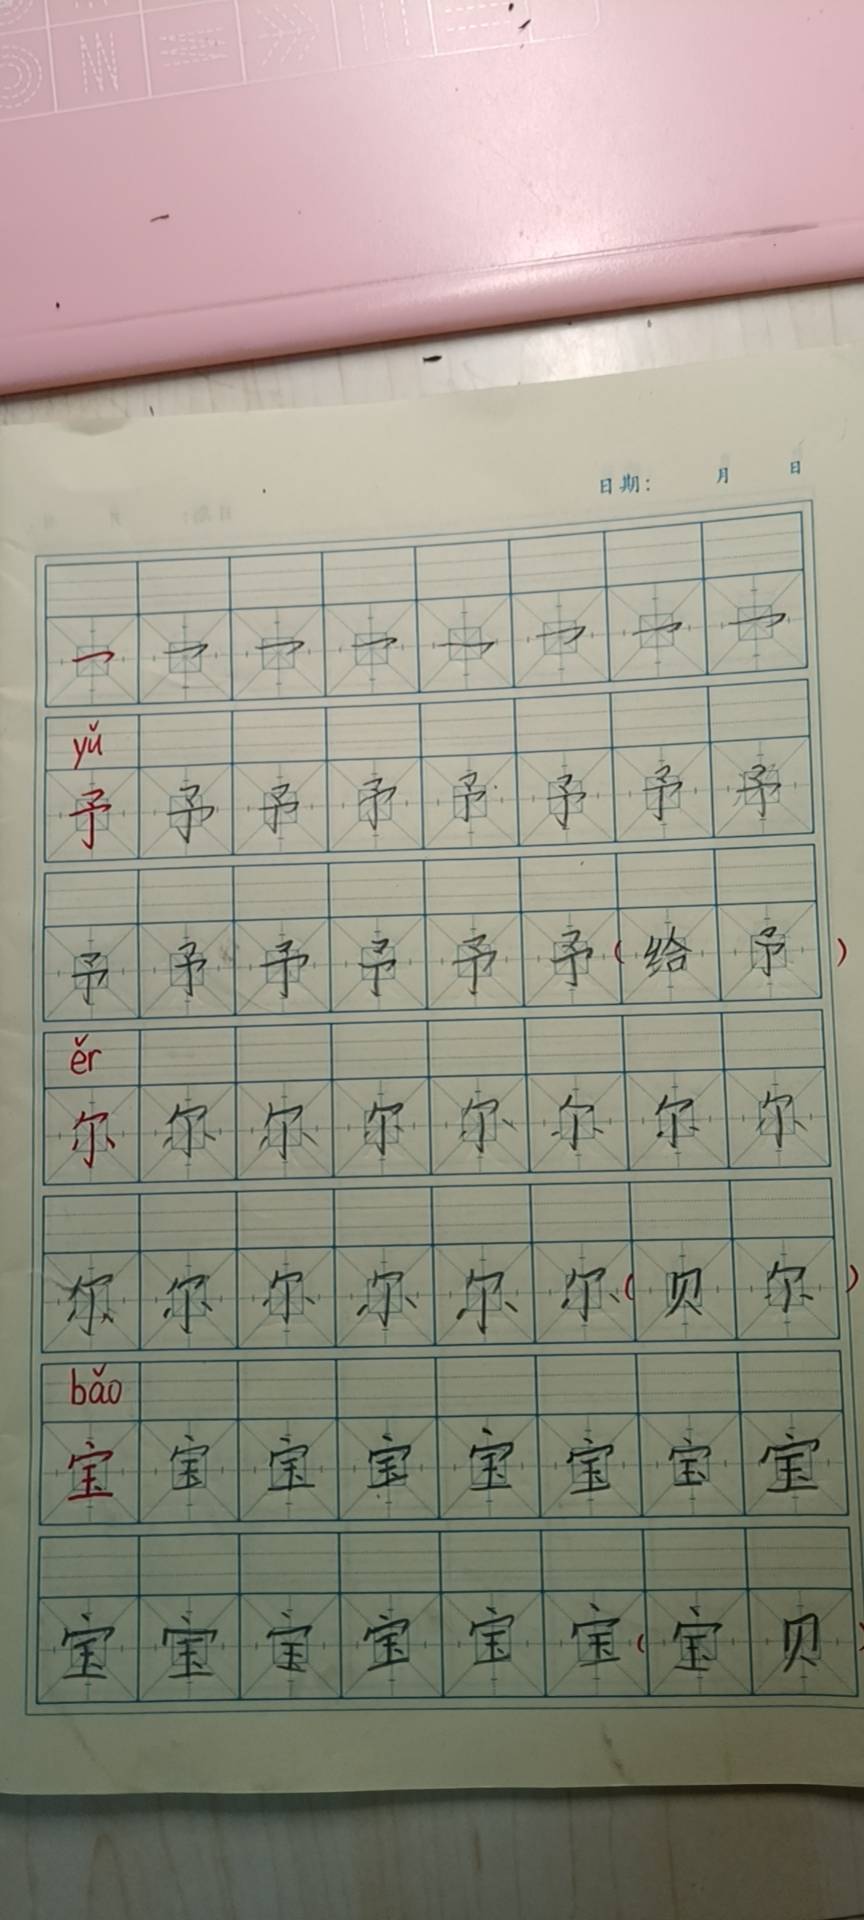 日期： 月 日
乛 乛 乛 乛 乛 乛 乛 乛
yǔ
予 予 予 予 予 予 予 予
予 予 予 予 予 予 （ 给 予 ）
ěr
尔 尔 尔 尔 尔 尔 尔 尔
尔 尔 尔 尔 尔 尔 （ 贝 尔 ）
bǎo
宝 宝 宝 宝 宝 宝 宝 宝
宝 宝 宝 宝 宝 宝 （ 宝 贝 ）